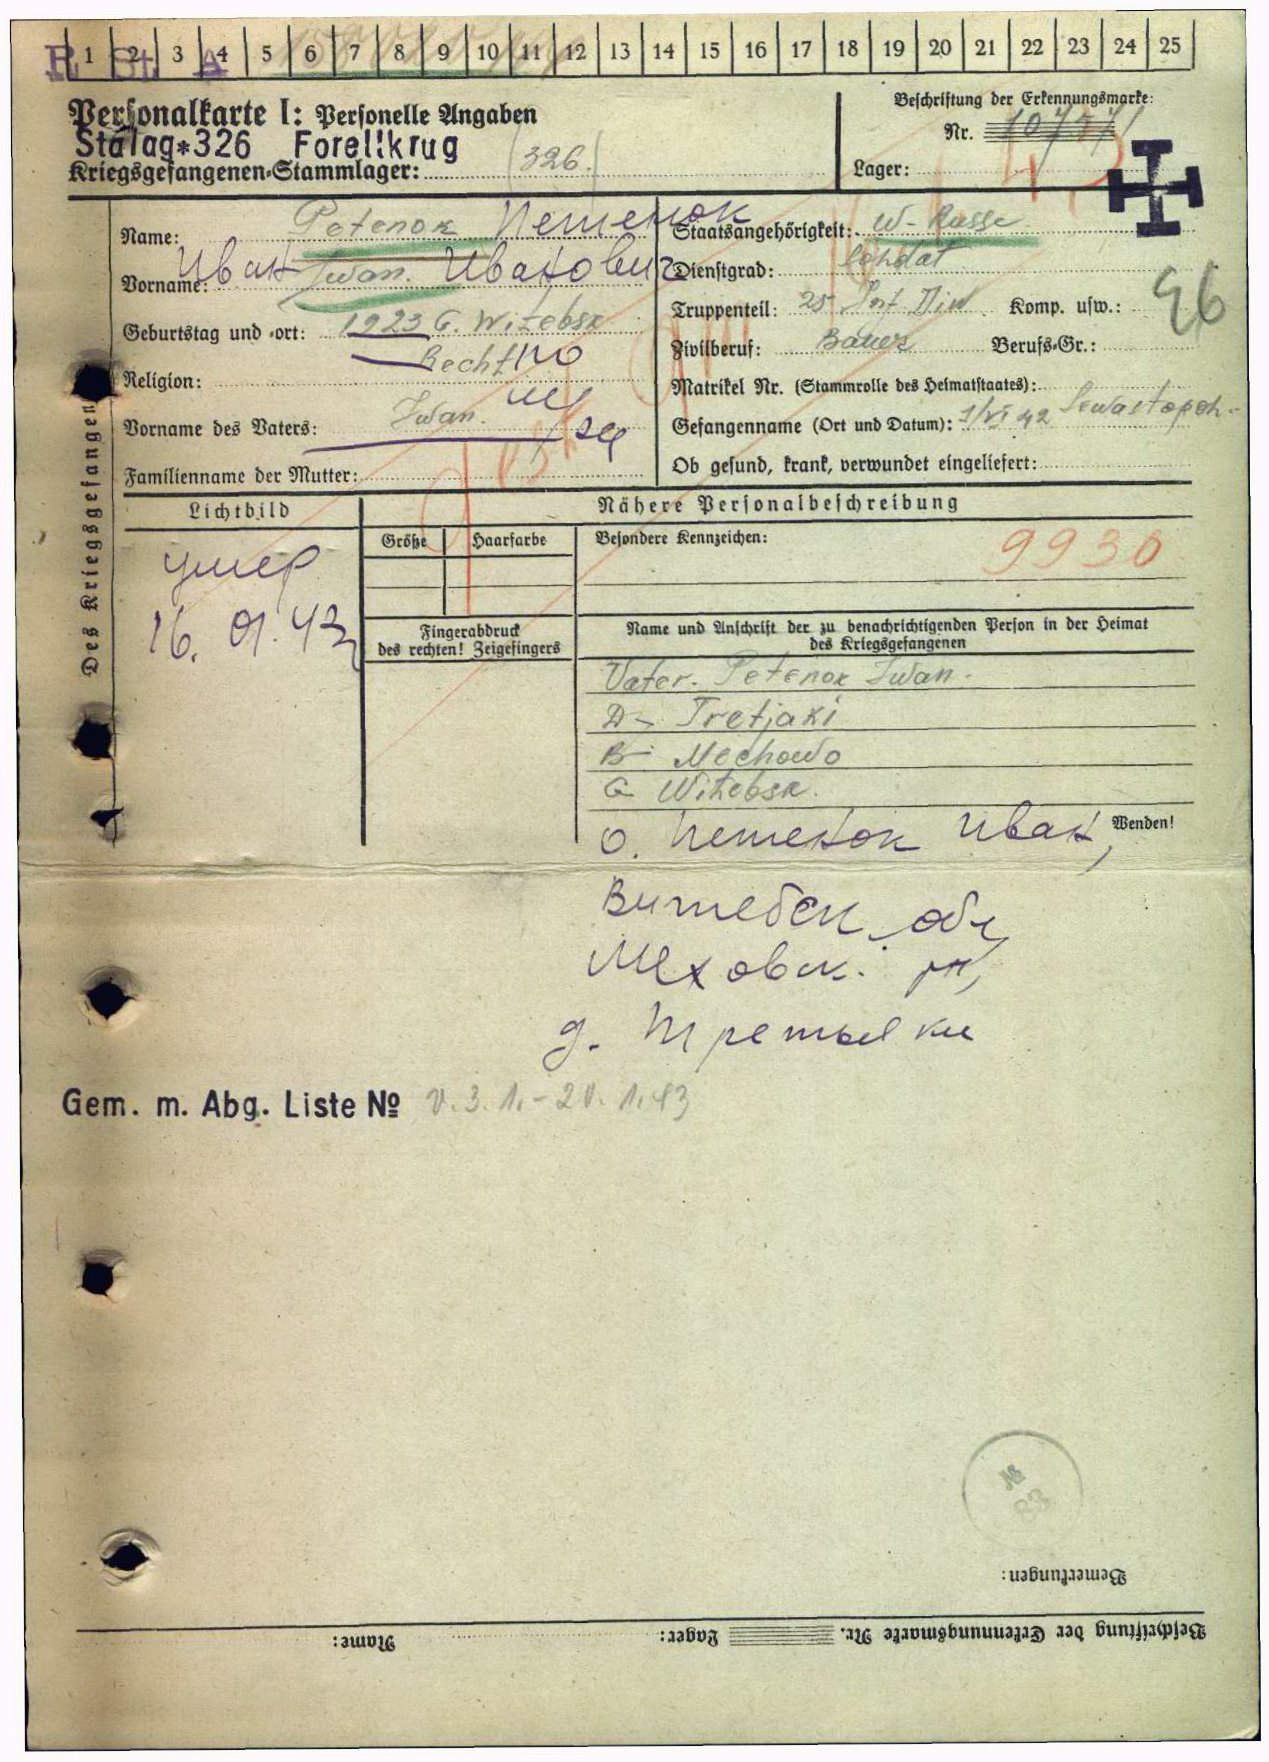 R. St. A
1 2 3 4 5 6 7 8 9 10 11 12 13 14 15 16 17 18 19 20 21 22 23 24 25
Personalkarte I: Personelle Angaben
Stalag*326 Forellkrug
Kriegsgefangenen-Stammlager: (326.)
Beschriftung der Erkennungsmarke:
Nr.
Lager:
Des Kriegsgefangenen
Name: Petenok Петенок
Vorname: Иван Iwan. Иванович
Geburtstag und -ort: 1923 G. Witebsk
Religion:
Vorname des Vaters: Iwan.
Familienname der Mutter:
Staatsangehörigkeit: W-Russe
Dienstgrad: Sohdat
Truppenteil: 25 Inf. Diw Komp. usw.: 96
Zivilberuf: Bauer Berufs-Gr.:
Matrikel Nr. (Stammrolle des Heimatstaates):
Gefangenname (Ort und Datum): 1/VI 42 Sewastopoh.
Ob gesund, krank, verwundet eingeliefert:
Lichtbild
умер
16. 01. 43
Nähere Personalbeschreibung
Größe Haarfarbe
Besondere Kennzeichen: 9930
Fingerabdruck
des rechten! Zeigefingers
Name und Anschrift der zu benachrichtigenden Person in der Heimat
des Kriegsgefangenen
Vater. Petenok Iwan.
D- Tretjaki
B- Mechowo
G Witebsk.
Wenden!
о. Петенок Иван,
Витебск. обл,
Меховск. рн,
д. Третьяки
Gem. m. Abg. Liste № v. 3. 1. - 20. 1. 43
№
83
Bemerkungen:
Beschriftung der Erkennungsmarke Nr. Lager: Name: